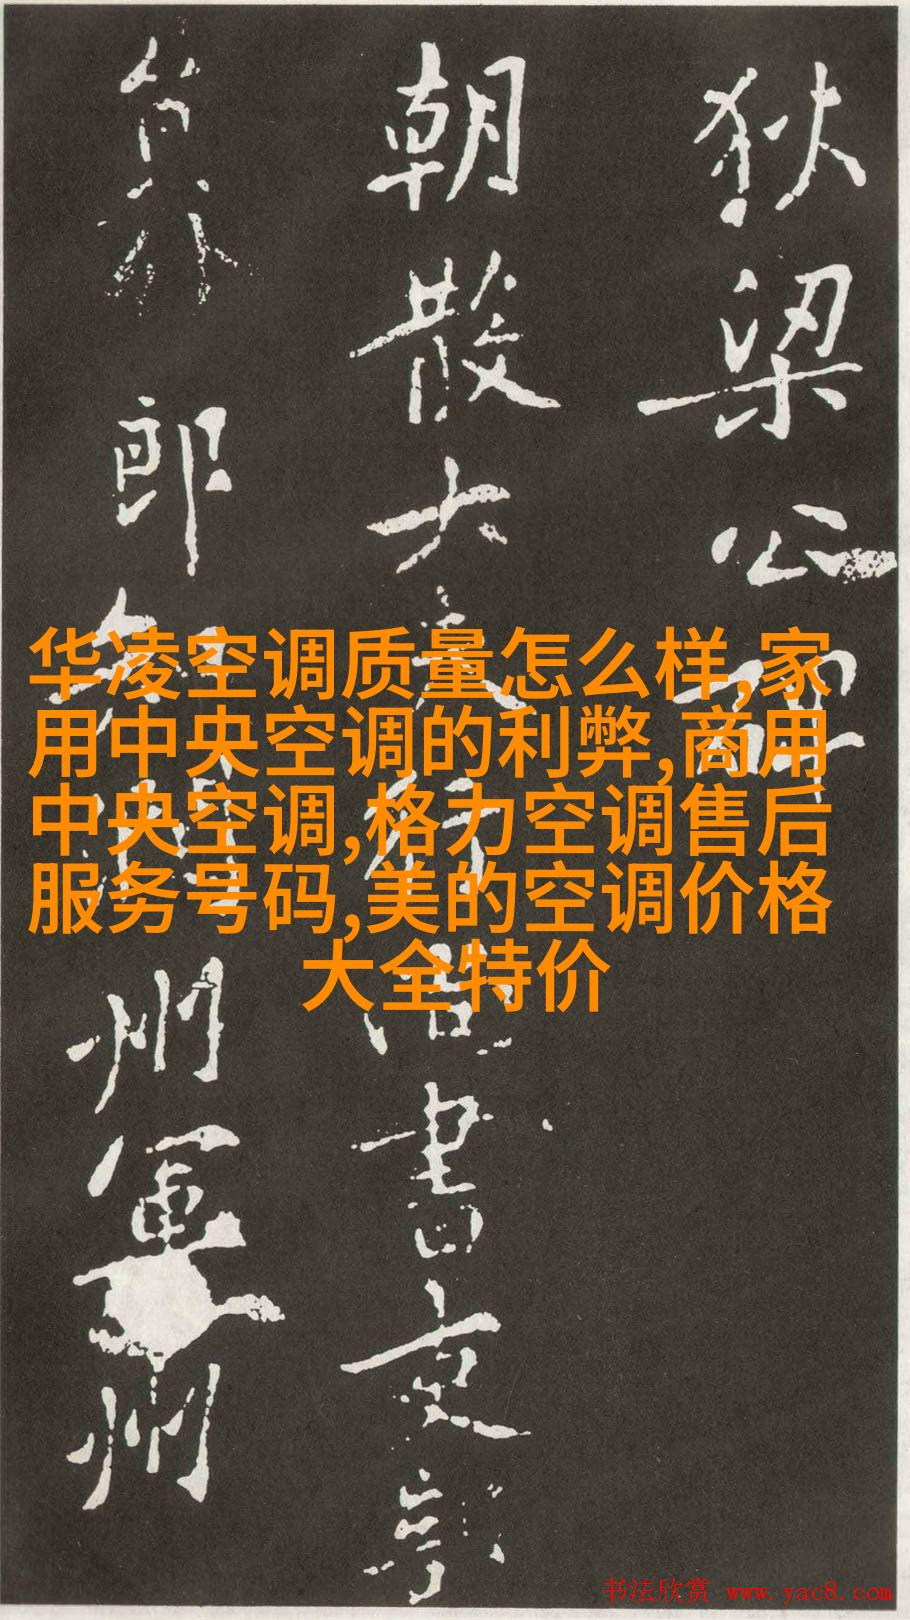 狄梁公碑
朝散大夫行尚書吏部
員外郎知潤州軍州
华凌空调质量怎么样,家
用中央空调的利弊,商用
中央空调,格力空调售后
服务号码,美的空调价格
大全特价
书法欣赏 www.yac8.com